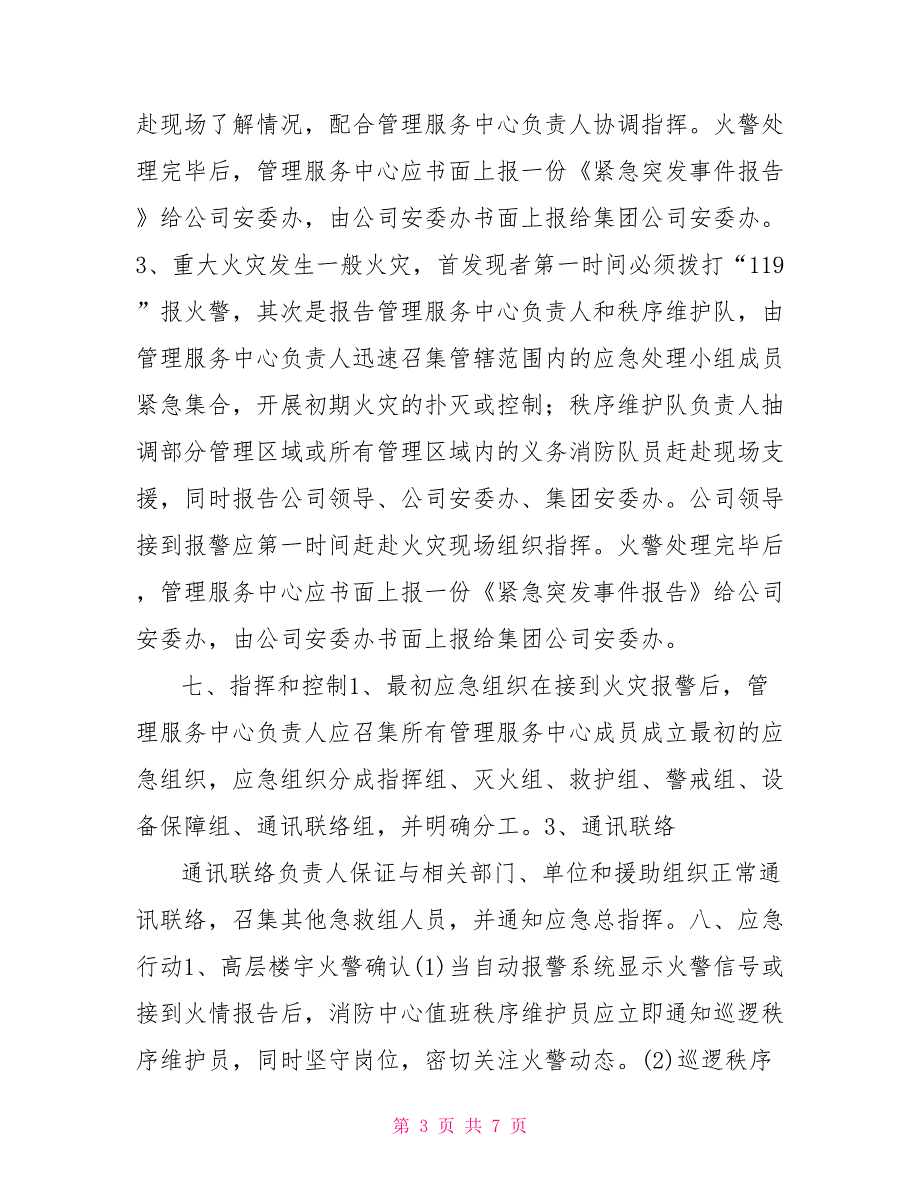 赴现场了解情况，配合管理服务中心负责人协调指挥。火警处
理完毕后，管理服务中心应书面上报一份《紧急突发事件报告
》给公司安委办，由公司安委办书面上报给集团公司安委办。
3、重大火灾发生一般火灾，首发现者第一时间必须拨打“119
”报火警，其次是报告管理服务中心负责人和秩序维护队，由
管理服务中心负责人迅速召集管辖范围内的应急处理小组成员
紧急集合，开展初期火灾的扑灭或控制；秩序维护队负责人抽
调部分管理区域或所有管理区域内的义务消防队员赶赴现场支
援，同时报告公司领导、公司安委办、集团安委办。公司领导
接到报警应第一时间赶赴火灾现场组织指挥。火警处理完毕后
，管理服务中心应书面上报一份《紧急突发事件报告》给公司
安委办，由公司安委办书面上报给集团公司安委办。
七、指挥和控制1、最初应急组织在接到火灾报警后，管
理服务中心负责人应召集所有管理服务中心成员成立最初的应
急组织，应急组织分成指挥组、灭火组、救护组、警戒组、设
备保障组、通讯联络组，并明确分工。3、通讯联络
通讯联络负责人保证与相关部门、单位和援助组织正常通
讯联络，召集其他急救组人员，并通知应急总指挥。八、应急
行动1、高层楼宇火警确认(1)当自动报警系统显示火警信号或
接到火情报告后，消防中心值班秩序维护员应立即通知巡逻秩
序维护员，同时坚守岗位，密切关注火警动态。(2)巡逻秩序
第 3 页 共 7 页